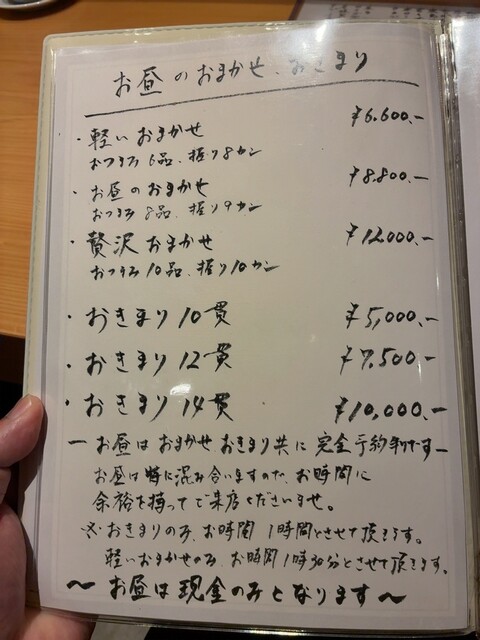 お昼のおまかせ、おきまり
・軽いおまかせ ¥6.600.-
おつまみ6品、握り8カン
・お昼のおまかせ ¥8.800.-
おつまみ8品、握り9カン
・贅沢おまかせ ¥12,000.-
おつまみ10品、握り10カン
・おきまり10貫 ¥5,000.-
・おきまり12貫 ¥7,500.-
・おきまり14貫 ¥10,000.-
ーお昼はおまかせおきまり共に完全予約制ですー
お昼は特に混み合いますので、お時間に
余裕を持ってご来店くださいませ。
※おきまりのみ、お時間1時間とさせて頂きます。
軽いおまかせのみ、お時間1時30分とさせて頂きます。
〜お昼は現金のみとなります〜